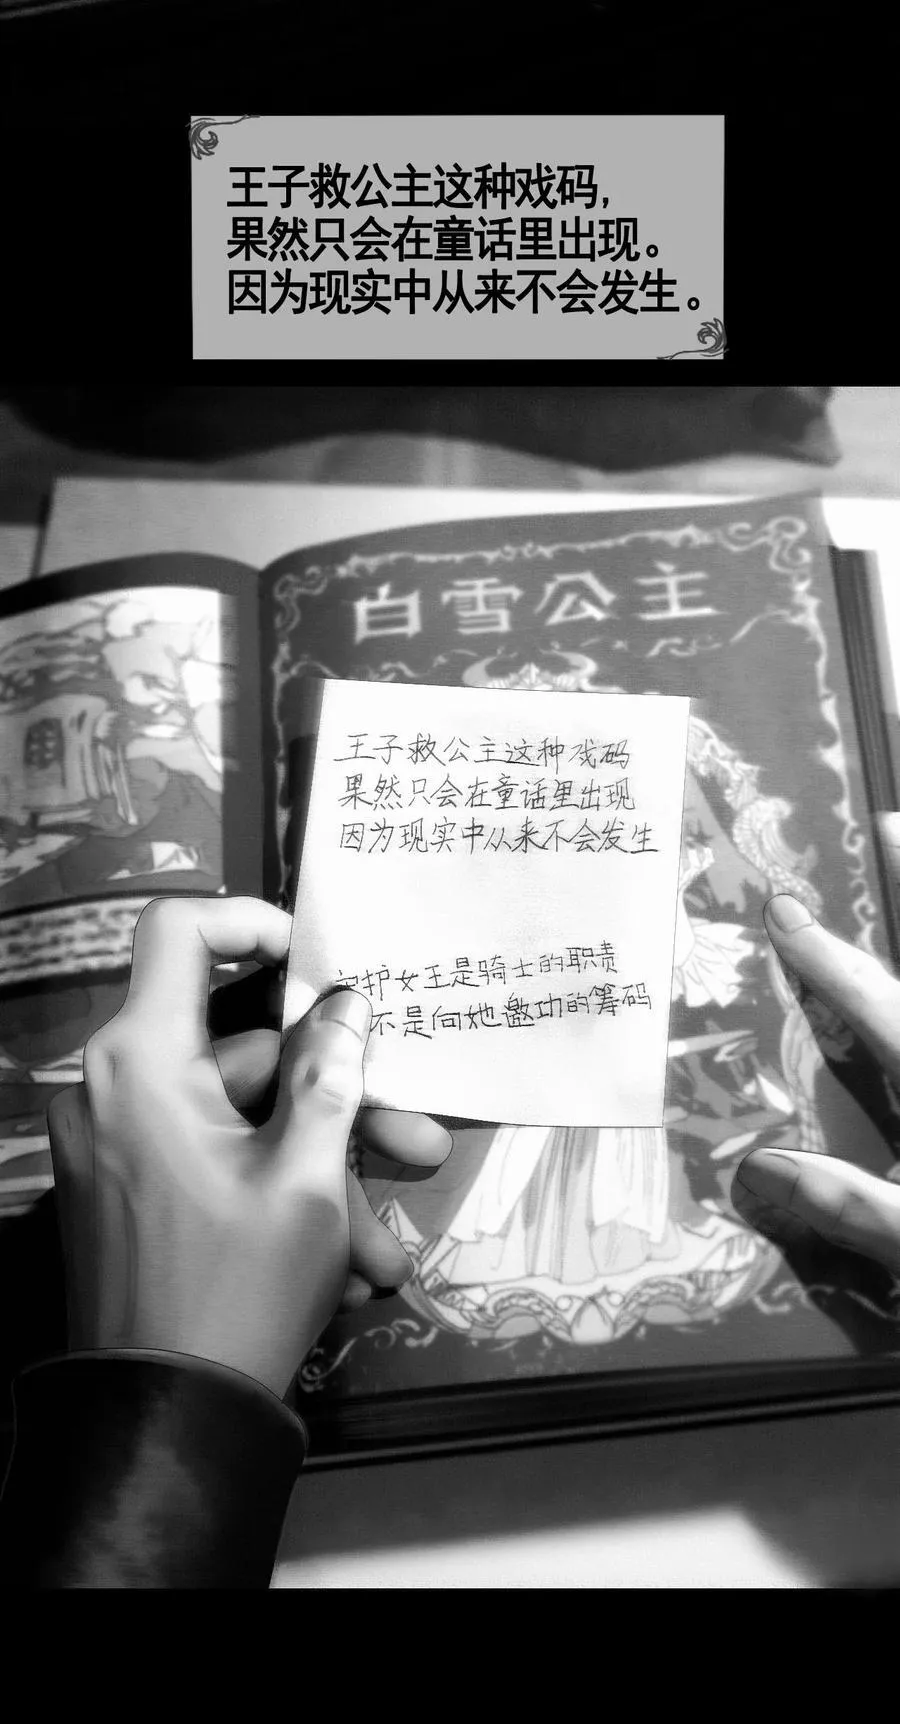 王子救公主这种戏码,
果然只会在童话里出现。
因为现实中从来不会发生。
白雪公主
王子救公主这种戏码
果然只会在童话里出现
因为现实中从来不会发生
护女王是骑士的职责
不是向她邀功的筹码